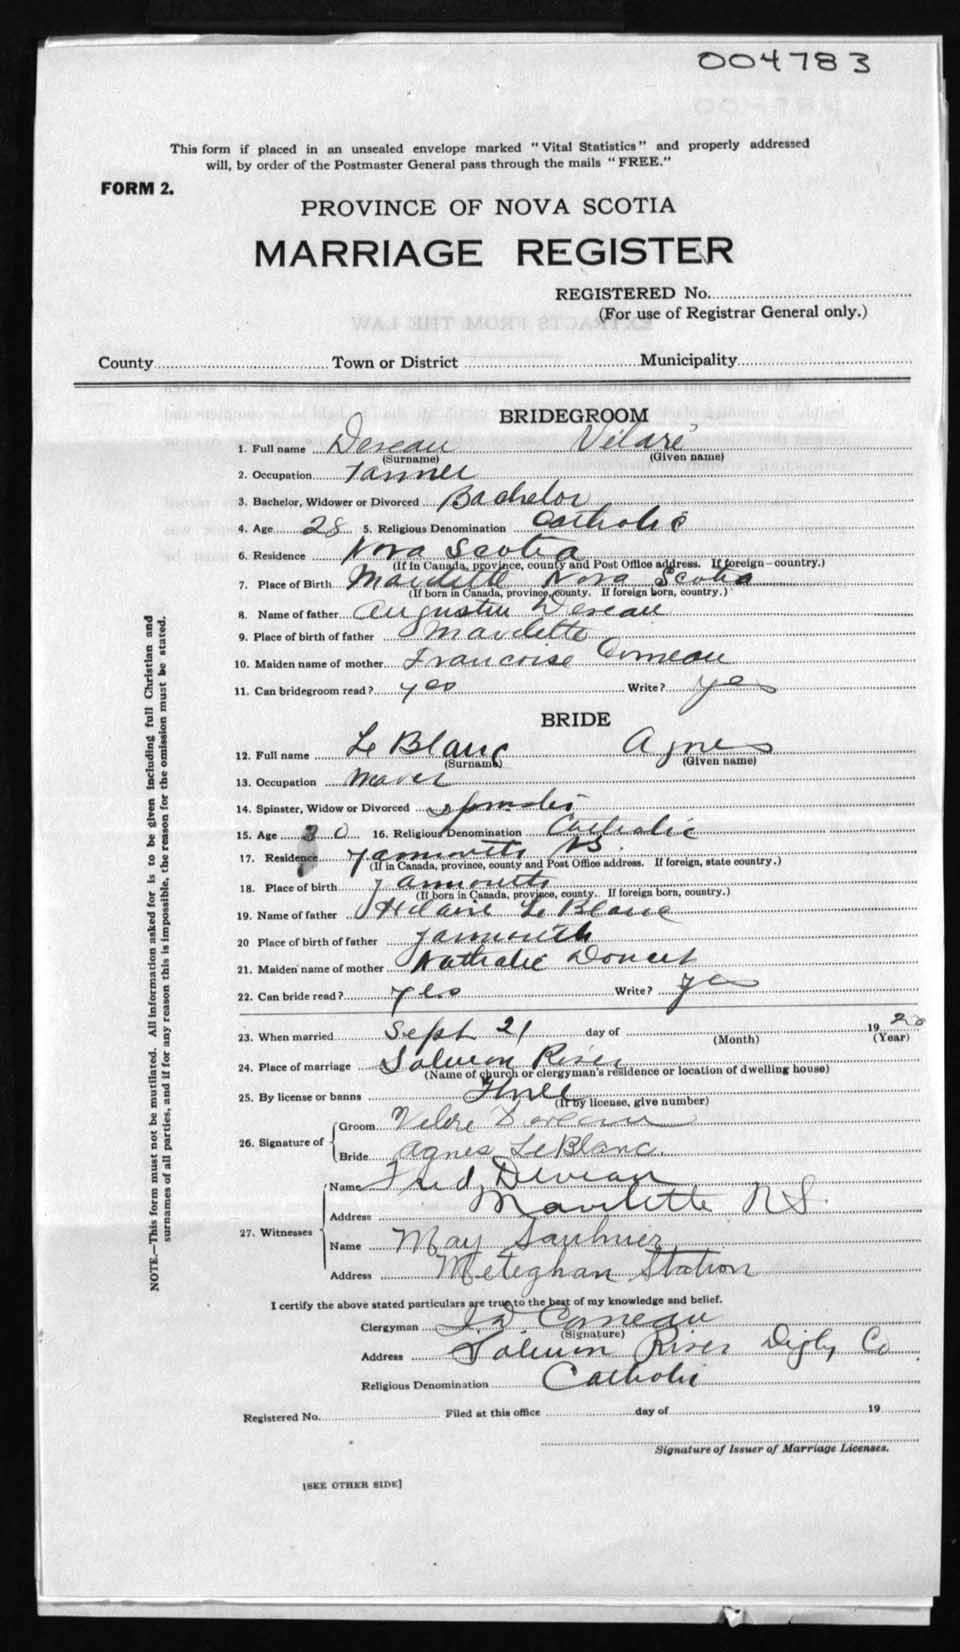 004783
This form if placed in an unsealed envelope marked "Vital Statistics" and properly addressed
will, by order of the Postmaster General pass through the mails "FREE."
FORM 2.
PROVINCE OF NOVA SCOTIA
MARRIAGE REGISTER
REGISTERED No.
(For use of Registrar General only.)
County Town or District Municipality
BRIDEGROOM
1. Full name Deveau Vilaré
(Surname) (Given name)
2. Occupation
3. Bachelor, Widower or Divorced Bachelor
4. Age 28 5. Religious Denomination Catholic
6. Residence Nova Scotia
(If in Canada, province, county and Post Office address. If foreign—country.)
7. Place of Birth Mavilette Nova Scotia
(If born in Canada, province, county. If foreign born, country.)
8. Name of father Augustin Deveau
9. Place of birth of father Mavilette
10. Maiden name of mother Francoise Comeau
11. Can bridegroom read? yes Write? yes
BRIDE
12. Full name Le Blanc Agnes
(Surname) (Given name)
13. Occupation
14. Spinster, Widow or Divorced Spinster
15. Age 30 16. Religious Denomination Catholic
17. Residence Yarmouth NS.
(If in Canada, province, county and Post Office address. If foreign, state country.)
18. Place of birth Yarmouth
(If born in Canada, province, county. If foreign born, country.)
19. Name of father Hilaire Le Blanc
20 Place of birth of father Yarmouth
21. Maiden name of mother Nathalie Doucet
22. Can bride read? yes Write? yes
23. When married Sept 21 day of 1920
(Month) (Year)
24. Place of marriage Salmon River
(Name of church or clergyman's residence or location of dwelling house)
25. By license or banns
(If by license, give number)
26. Signature of Groom Vilére Deveau
Bride Agnes LeBlanc.
27. Witnesses Name Fred Deveau
Address Mavilette N.S.
Name May Saulnier
Address Meteghan Station
I certify the above stated particulars are true to the best of my knowledge and belief.
Clergyman Comeau
(Signature)
Address Salmon River Digby Co
Religious Denomination Catholic
Registered No. Filed at this office day of 19
Signature of Issuer of Marriage Licenses.
[SEE OTHER SIDE]
NOTE.—This form must not be mutilated. All information asked for is to be given including full Christian and
surnames of all parties, and if for any reason this is impossible, the reason for the omission must be stated.